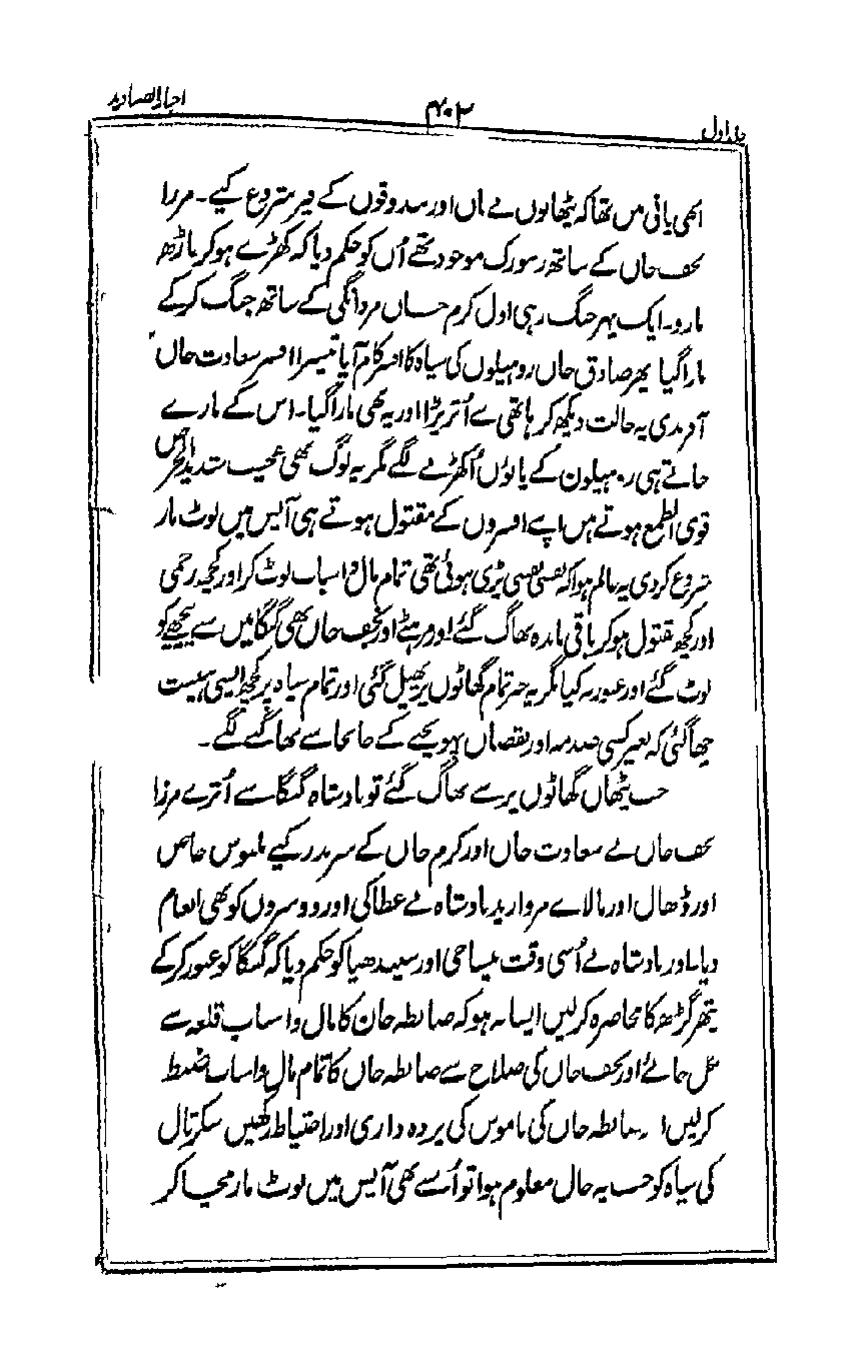 اخبار الصنادید
۴۰۲
جلد اول
ابھی پانی میں تھا کہ پٹھانوں نے بان اور بندوقوں کے فیر شروع کیے۔ مرزا
نجف خاں کے ساتھ زنبورک موجود تھے اُن کو حکم دیا کہ کھڑے ہو کر باڑھ
مارو۔ ایک پہر جنگ رہی اول کرم خاں مردانگی کے ساتھ جنگ کرکے
مارا گیا پھر صادق خاں روہیلوں کی سپاہ کا افسر کام آیا تیسرا افسر سعادت خاں
آفریدی یہ حالت دیکھ کر ہاتھی سے اُتر پڑا اور یہ بھی مارا گیا۔ اس کے مارے
جاتے ہی روہیلون کے پانوؤں اُکھڑنے لگے مگر یہ لوگ بھی عجیب شدید الحرص
قوی الطمع ہوتے ہیں اپنے افسروں کے مقتول ہوتے ہی آپس میں لوٹ مار
شروع کردی یہ عالم ہوا کہ نفسی نفسی پڑی ہوئی تھی تمام مال و اسباب لوٹ کر اور کچھ زخمی
اور کچھ مقتول ہو کر باقی ماندہ بھاگ گئے اور مرہٹے اور نجف خاں بھی گنگا میں سے پیچھے کو
لوٹ گئے اور عبور نہ کیا مگر یہ خبر تمام گھاٹوں پر پھیل گئی اور تمام سپاہ پر کچھ ایسی ہیبت
چھا گئی کہ بغیر کسی صدمہ اور نقصاں پہونچنے کے جابجا سے بھاگنے لگے۔
جب پٹھان گھاٹوں پر سے بھاگ گئے تو بادشاہ گنگا سے اُترے مرزا
نجف خاں نے سعادت خاں اور کرم خاں کے سر نذر کیے ملبوس خاص
اور ڈھال اور مالاے مروارید بادشاہ نے عطا کی اور دوسروں کو بھی انعام
دیا۔ اور بادشاہ نے اُسی وقت بیساجی اور سیندھیا کو حکم دیا کہ گنگا کو عبور کرکے
پتھر گڑھ کا محاصرہ کرلیں ایسا نہ ہو کہ ضابطہ خان کا مال و اسباب قلعہ سے
نکل جائے اور نجف خاں کی صلاح سے ضابطہ خاں کا تمام مال و اسباب ضبط
کرلیں۔ ضابطہ خاں کی ناموس کی پردہ داری اور احتیاط رکھیں سکرتال
کی سپاہ کو جب یہ حال معلوم ہوا تو اُسنے بھی آپس میں لوٹ مار مچا کر